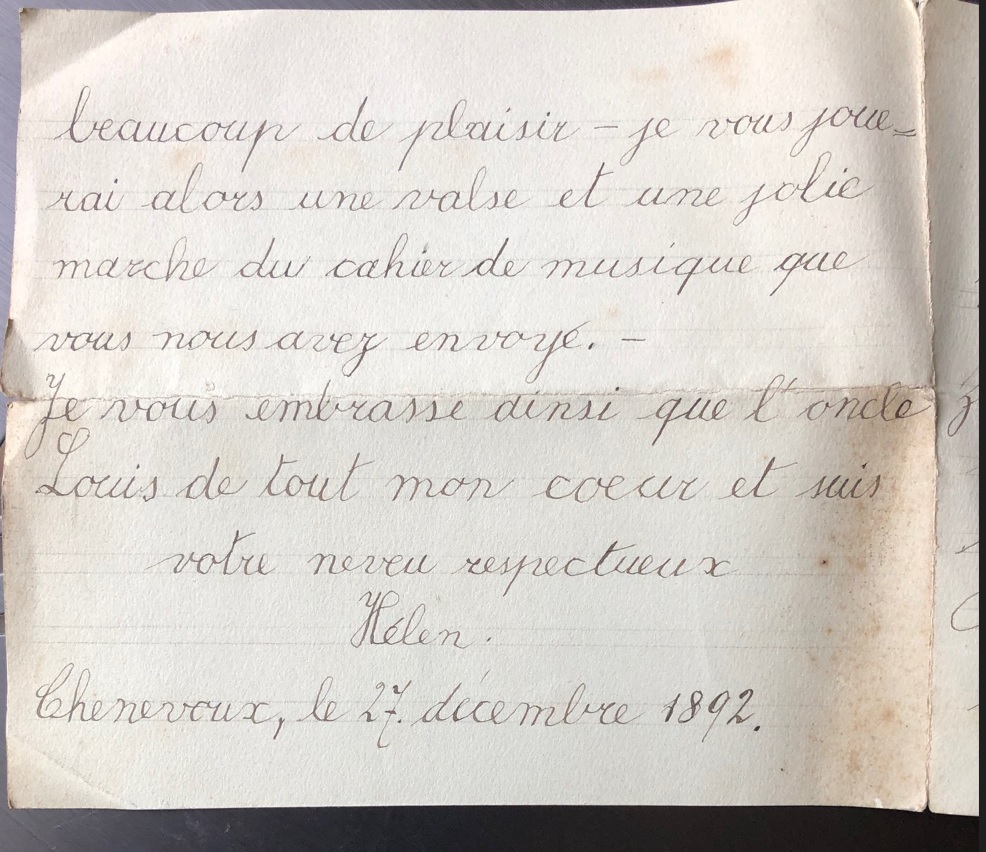 beaucoup de plaisir – je vous joue=
rai alors une valse et une jolie
marche du cahier de musique que
vous nous avez envoyé. –
Je vous embrasse ainsi que l'oncle
Louis de tout mon coeur et suis
votre neveu respectueux
Hélen.
Chenevoux, le 27. décembre 1892.